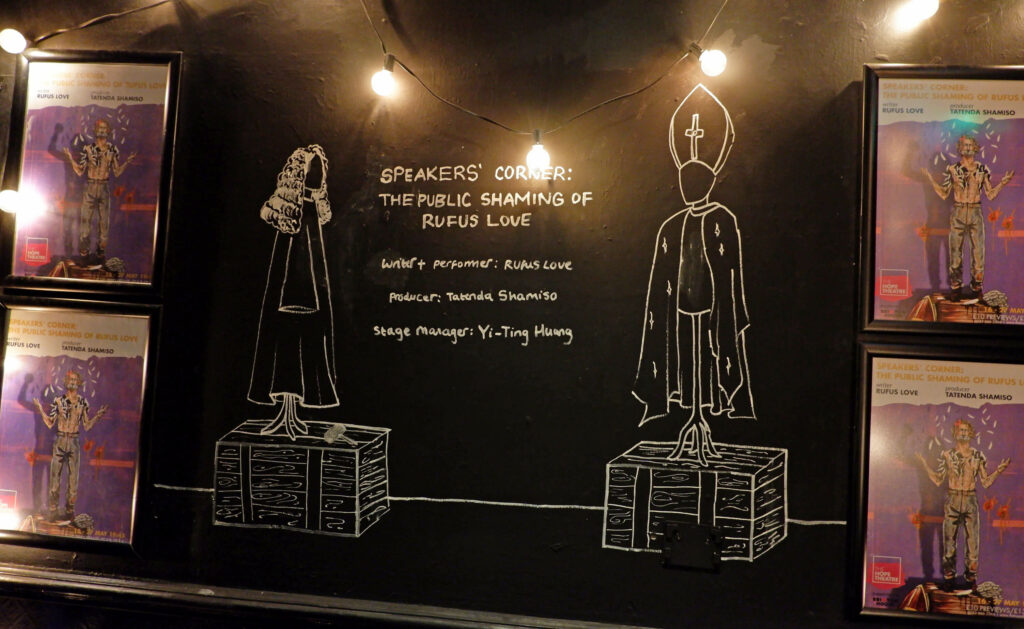 SPEAKERS' CORNER:
THE PUBLIC SHAMING OF
RUFUS LOVE
Writer + performer: RUFUS LOVE
Producer: Tatenda Shamiso
Stage manager: Yi-Ting Huang
SPEAKERS' CORNER:
THE PUBLIC SHAMING OF RUFUS LOVE
writer producer
RUFUS LOVE TATENDA SHAMISO
HOPE THEATRE
MAY
SPEAKERS' CORNER:
THE PUBLIC SHAMING OF RUFUS LOVE
writer producer
RUFUS LOVE TATENDA SHAMISO
MAY
SPEAKERS' CORNER:
THE PUBLIC SHAMING OF RUFUS
writer producer
RUFUS LOVE TATENDA SHAMISO
HOPE THEATRE
MAY
£10 PREVIEWS/£
SPEAKERS' CORNER:
THE PUBLIC SHAMING OF RUFUS
writer producer
RUFUS LOVE TATENDA SHAMISO
THE
HOPE
THEATRE
MAY
£10 PREVIEWS/£